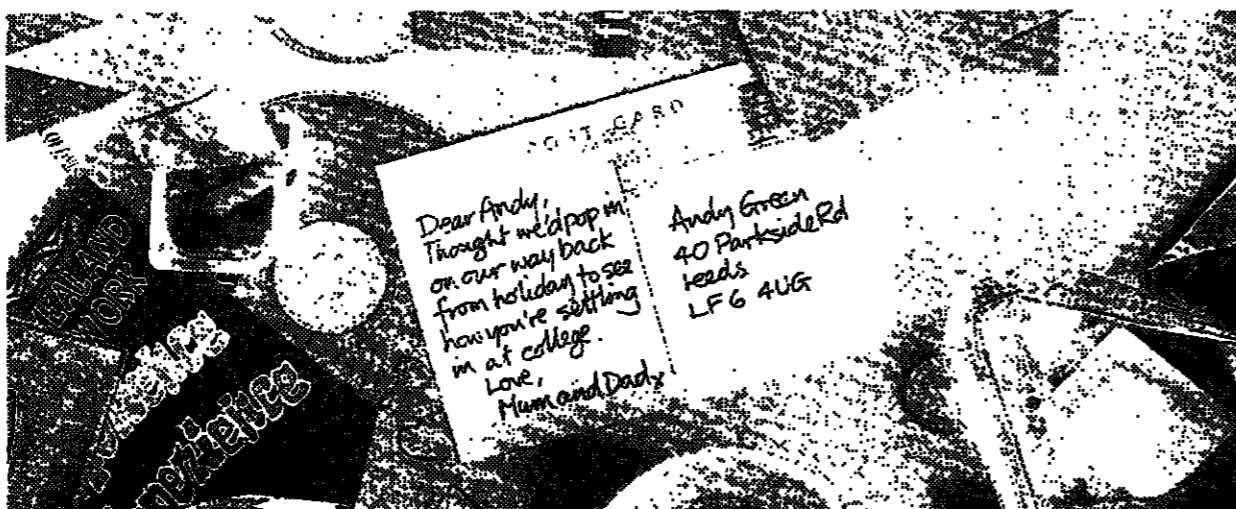 POST CARD
Dear Andy,
Thought we'd pop in
on our way back
from holiday to see
how you're settling
in at college.
Love,
Mum and Dad x
Andy Green
40 Parkside Rd
Leeds
LF6 4UG
EALAND
YORK